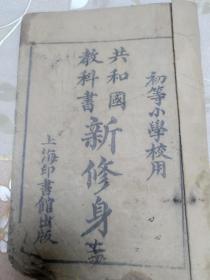 初等小學校用
共和國
教科書
新修身
上海印書館出版